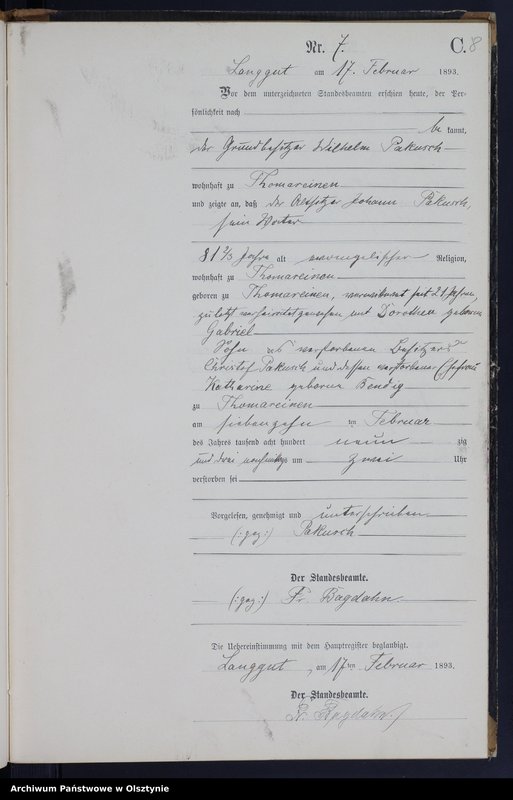 Nr. 7. C. 8
Langgut am 17. Februar 1893.
Vor dem unterzeichneten Standesbeamten erschien heute, der Per-
sönlichkeit nach
be kannt,
der Grundbesitzer Wilhelm Pakusch
wohnhaft zu Thomareinen
und zeigte an, daß der Altsitzer Johann Pakusch,
sein Vater
81 2/3 Jahre alt evangelischer Religion,
wohnhaft zu Thomareinen
geboren zu Thomareinen, verwitwet seit 21 Jahren,
zuletzt verheiratet gewesen mit Dorothea geborene
Gabriel
Sohn des verstorbenen Besitzers
Christof Pakusch und dessen verstorbene Ehefrau
Katharine geborene Bendig
zu Thomareinen
am siebenzehn ten Februar
des Jahres tausend acht hundert neun zig
und drei um zwei Uhr
verstorben sei
Vorgelesen, genehmigt und unterschrieben
(:gez:) Pakusch
Der Standesbeamte.
(:gez:) Fr. Bagdahn.
Die Uebereinstimmung mit dem Hauptregister beglaubigt.
Langgut, am 17ten Februar 1893.
Der Standesbeamte.
Fr. Bagdahn
Archiwum Państwowe w Olsztynie